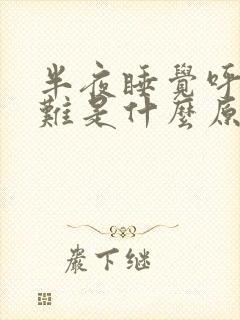 半夜睡覺呼
難是什麼原
嚴下継